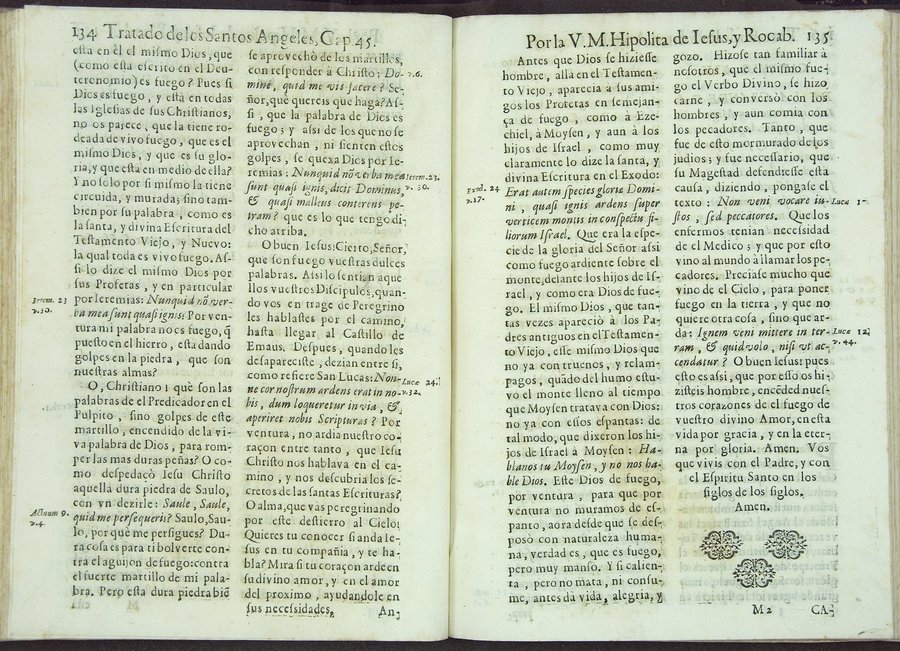 134 Tratado de los Santos Angeles, Cap 45.
esta en èl el mismo Dios, que
(como esta escrito en el Deu-
teronomio) es fuego? Pues si
Dios es fuego, y està en todas
las Iglesias de sus Christianos,
no os parece, que la tiene ro-
deada de vivo fuego, que es el
mismo Dios, y que es su glo-
ria, y que esta en medio de ella?
Y no solo por si mismo la tiene
circuida, y murada; sino tam-
bien por su palabra, como es
la santa, y divina Escritura del
Testamento Viejo, y Nuevo:
la qual toda es vivo fuego. As-
si lo dize el mismo Dios por
sus Profetas, y en particular
por Ieremias: Nunquid nõ ver-
ba mea sunt quasi ignis? Por ven-
tura mi palabra no es fuego, q̃
puesto en el hierro, esta dando
golpes en la piedra, que son
nuestras almas?
O, Christiano! què son las
palabras de el Predicador en el
Pulpito, sino golpes de este
martillo, encendido de la vi-
va palabra de Dios, para rom-
per las mas duras peñas? O co-
mo despedaçò Iesu Christo
aquella dura piedra de Saulo,
con vn dezirle: Saule, Saule,
quid me persequeris? Saulo, Sau-
lo, por què me persigues? Du-
ra cosa es para ti bolverte con-
tra el aguijon de fuego: contra
el fuerte martillo de mi pala-
bra. Pero esta dura piedra biẽ
Ierem. 23
v.30.
Actuum 9.
v.4.
se aprovechò de los martilles,
con responder à Christo: Do-
mine, quid me vis facere? Se-
ñor, què quereis que haga? As-
si, que la palabra de Dios es
fuego; y assi de los que no se
aprovechan, ni sienten estos
golpes, se quexa Dios por Ie-
remias: Nunquid nõ verba mea
sunt quasi ignis, dicit Dominus,
& quasi malleus conterens pe-
tram? que es lo que tengo di-
cho arriba.
O buen Iesus: Cierto, Señor,
que son fuego vuestras dulces
palabras. Assi lo sentian aque
llos vuestros Discipulos, quan-
do vos en trage de Peregrino
les hablastes por el camino,
hasta llegar al Castillo de
Emaus. Despues, quando les
desapareciste, dezian entre si,
como refiere San Lucas: Non-
ne cor nostrum ardens erat in no-
bis, dum loqueretur in via, &
aperiret nobis Scripturas? Por
ventura, no ardia nuestro co-
raçon entre tanto, que Iesu
Christo nos hablava en el ca-
mino, y nos descubria los se-
cretos de las santas Escrituras?
O alma, que vas peregrinando
por este destierro al Cielo!
Quieres tu conocer si anda Ie-
sus en tu compañia, y te ha-
bla? Mira si tu coraçon arde en
su divino amor, y en el amor
del proximo, ayudandole en
sus necessidades,
v.6.
Ierem. 23.
v. 30.
Lucæ 24.
v.32.
An-
Por la V. M. Hipolita de Iesus, y Rocab. 135
Antes que Dios se hiziesse
hombre, alla en el Testamen-
to Viejo, aparecia a sus ami-
gos los Profetas en semejan-
ça de fuego, como à Eze-
chiel, à Moysen, y aun à los
hijos de Israel, como muy
claramente lo dize la santa, y
divina Escritura en el Exodo:
Erat autem species gloriæ Domi-
ni, quasi ignis ardens super
verticem montis in conspectu fi-
liorum Israel. Que era la espe-
cie de la gloria del Señor assi
como fuego ardiente sobre el
monte, delante los hijos de Is-
rael, y como era Dios de fue-
go. El mismo Dios, que tan-
tas vezes apareciò à los Pa-
dres antiguos en el Testamen-
to Viejo, esse mismo Dios que
no ya con truenos, y relam-
pagos, quãdo del humo estu-
vo el monte lleno al tiempo
que Moysen tratava con Dios:
no ya con essos espantas: de
tal modo, que dixeron los hi-
jos de Israel à Moysen: Ha-
blanos tu Moysen, y no nos ha-
ble Dios. Este Dios de fuego,
por ventura, para que por
ventura no muramos de es-
panto, aora desde que se des-
posò con naturaleza huma-
na, verdad es, que es fuego,
pero muy manso. Y si calien-
ta, pero no mata, ni consu-
me, antes dà vida, alegria, y
Exod. 24
v.17.
gozo. Hizose tan familiar à
nosotros, que el mismo fue-
go el Verbo Divino, se hizo
carne, y conversò con los
hombres, y aun comia con
los pecadores. Tanto, que
fue de esto mormurado de los
judios; y fue necessario, que
su Magestad defendiesse esta
causa, diziendo, pongase el
texto: Non veni vocare iu-
stos, sed peccatores. Que los
enfermos tenian necessidad
de el Medico; y que por esto
vino al mundo à llamar los pe-
cadores. Preciase mucho que
vino de el Cielo, para poner
fuego en la tierra, y que no
quiere otra cosa, sino que ar-
da: Ignem veni mittere in ter-
ram, & quid volo, nisi vt ac-
cendatur? O buen Iesus: pues
esto es assi, que por esso os hi-
zisteis hombre, encẽded nues-
tros corazones de el fuego de
vuestro divino Amor, en esta
vida por gracia, y en la eter-
na por gloria. Amen. Vos
que vivis con el Padre, y con
el Espiritu Santo en los
siglos de los siglos.
Amen.
Lucæ 12.
v. 44.
M 2
CA-